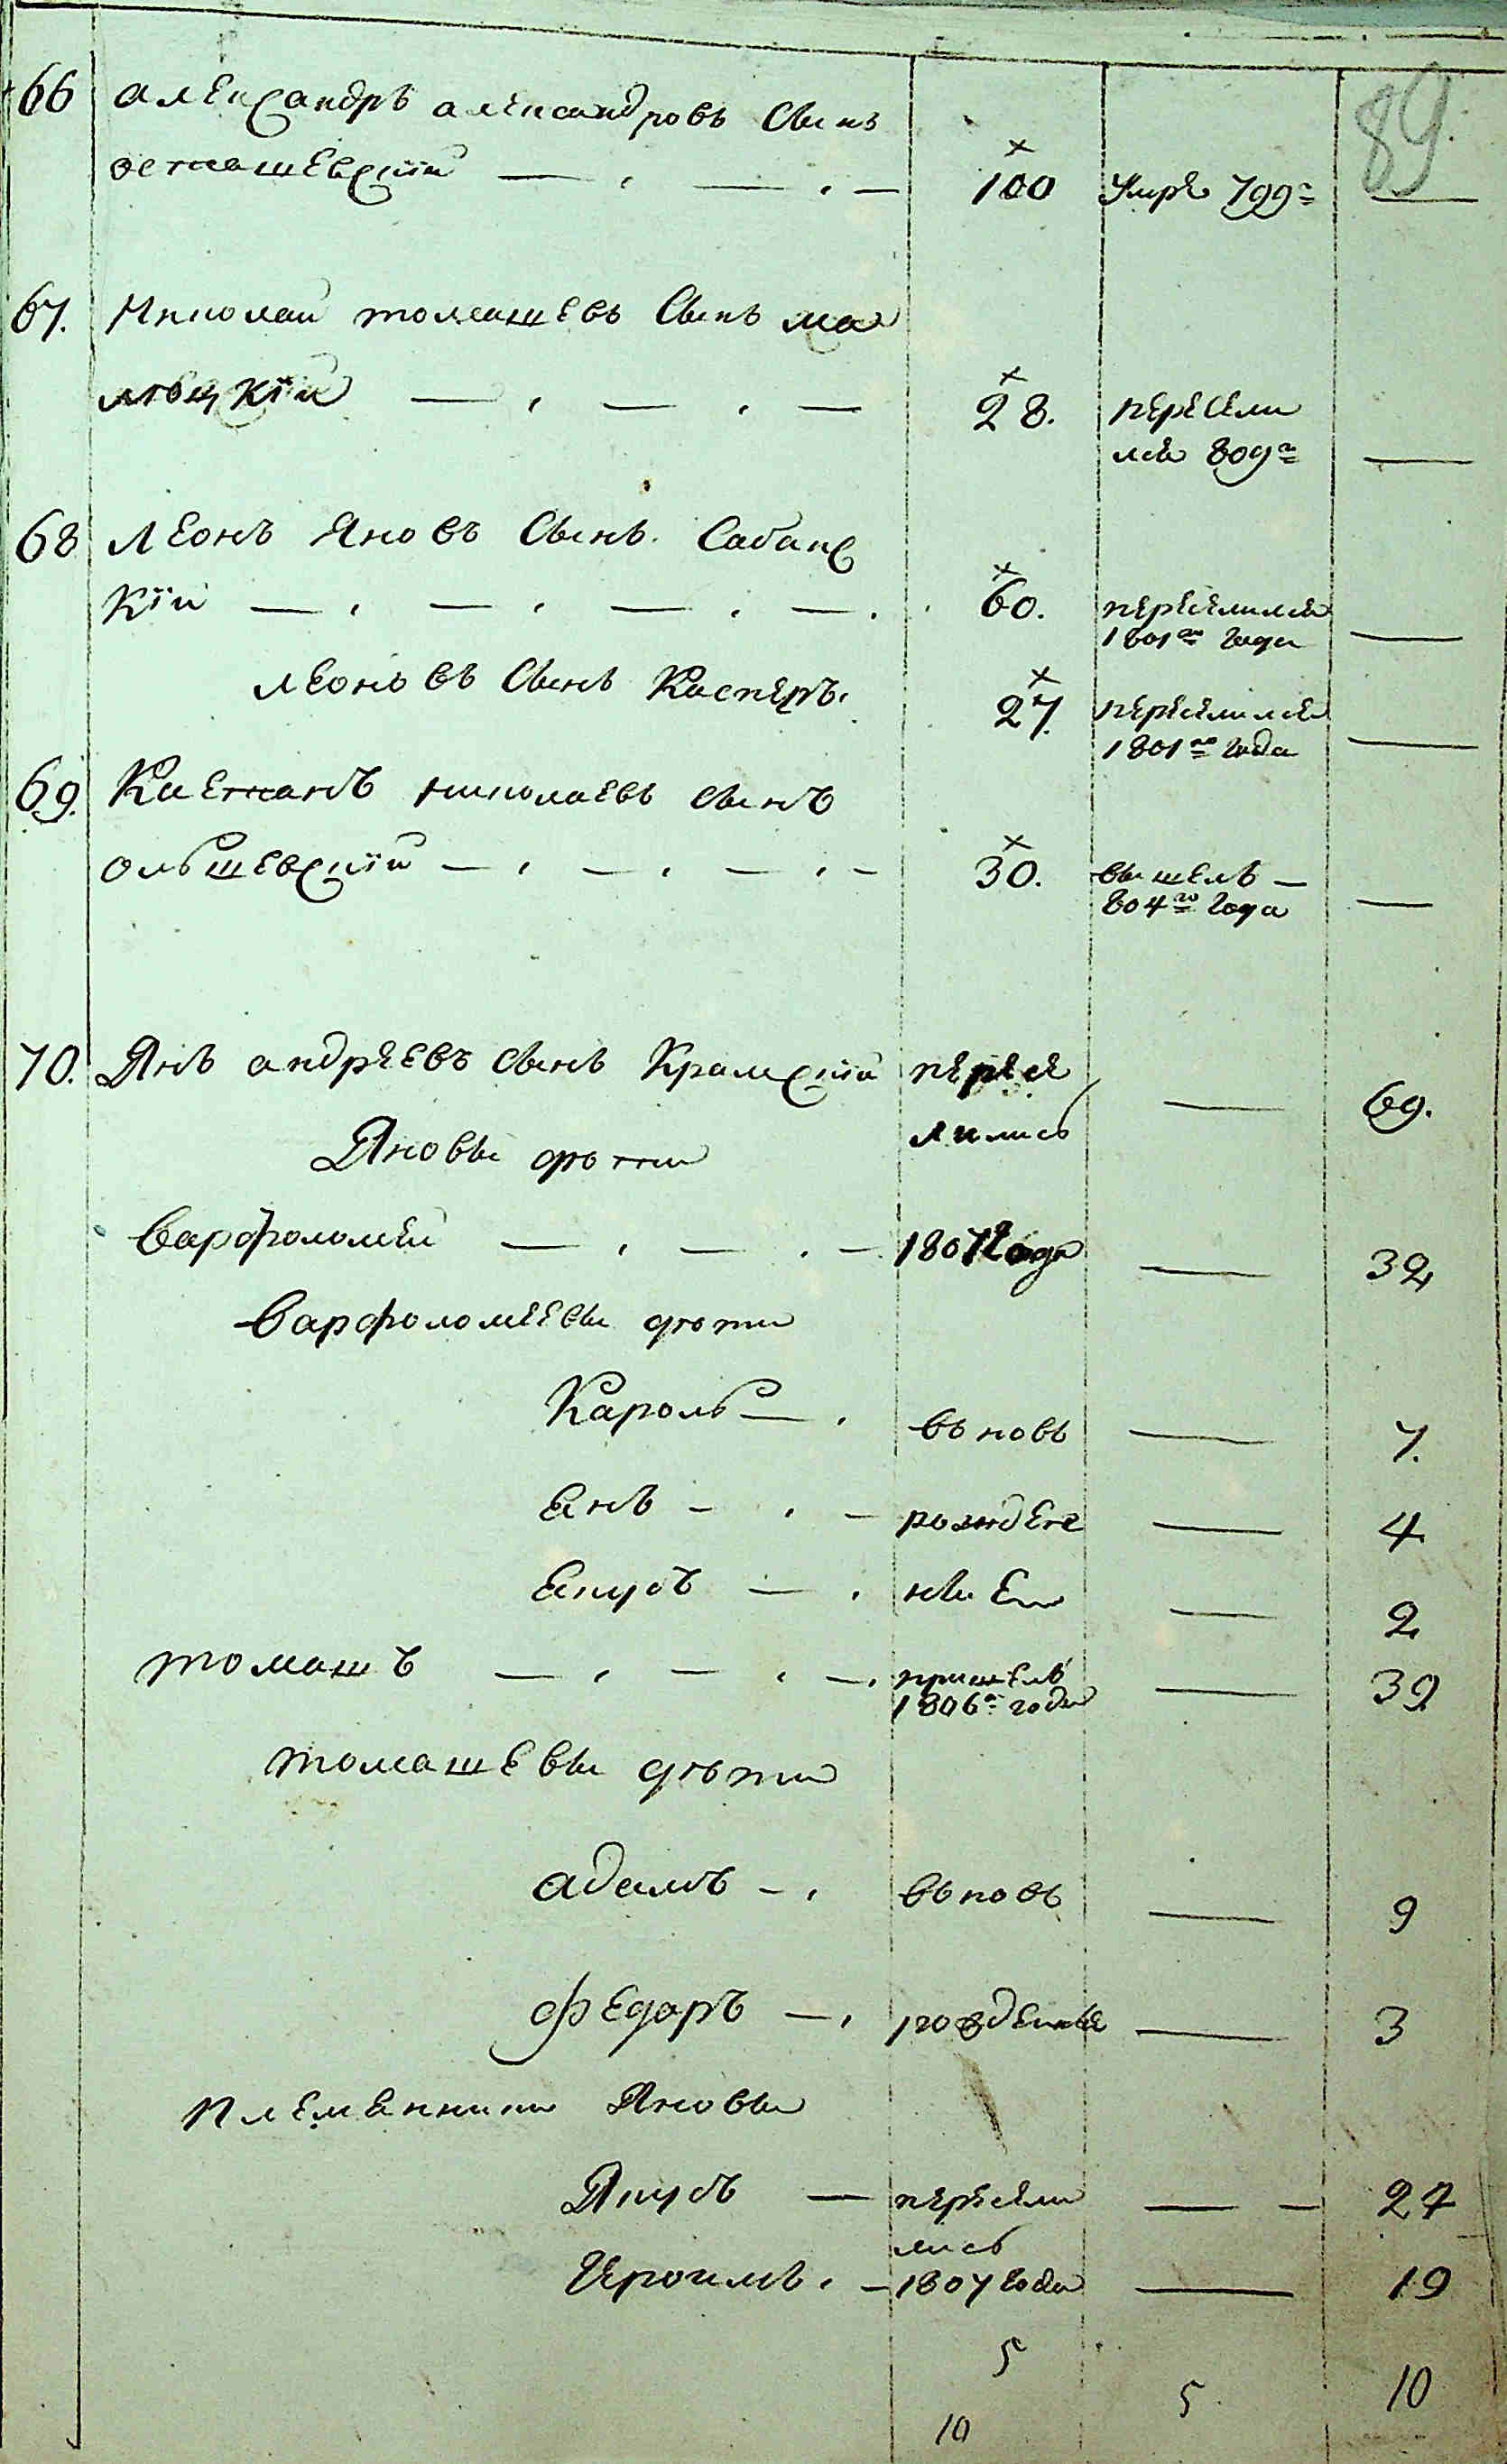 89
66 Александръ александровъ Сынъ
осташевскій 100 Умре 799го
67. Николай томашевъ Сынъ ма
лѣцкій 28. пересели
лся 809го
68 Леонъ Яновъ Сынъ Сабанс
кій 60. переселился
1801го года
леоновъ Сынъ Касперъ. 27. переселился
1801го года
69. Каетанъ николаевъ сынъ
ольшевскій 30. вышелъ
804го года
70. Янъ андреевъ сынъ Крамскій пересе 69.
Яновы дѣти лились
Варфоломей 1807 года 32
Варфоломеевы дѣти
Кароль вьновь 7.
Янъ рожденe 4
Якубъ ныe 2
томашъ пришелъ
1806го года 39
томашевы дѣти
адамъ вьновь 9
федаръ рожденые 3
племенники Яновы
Якубъ пересели 27
лись
Героимъ. 1807 года 19
5
5 10
10